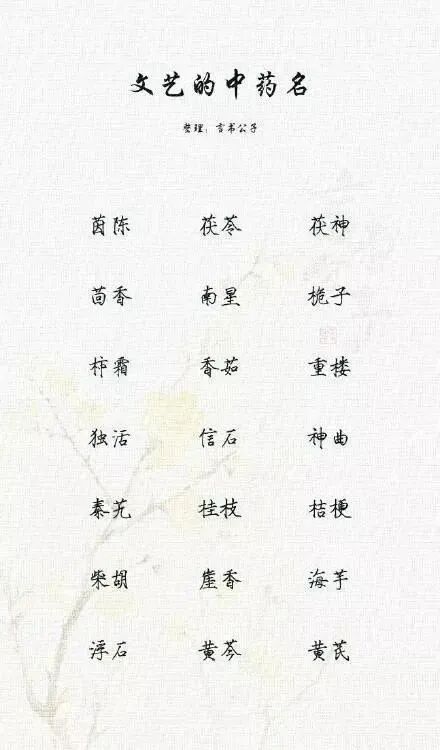 文艺的中药名
整理：言书公子
茵陈 茯苓 茯神
茴香 南星 桅子
柿霜 香茹 重楼
独活 信石 神曲
秦艽 桂枝 桔梗
柴胡 崖香 海芋
浮石 黄芩 黄芪